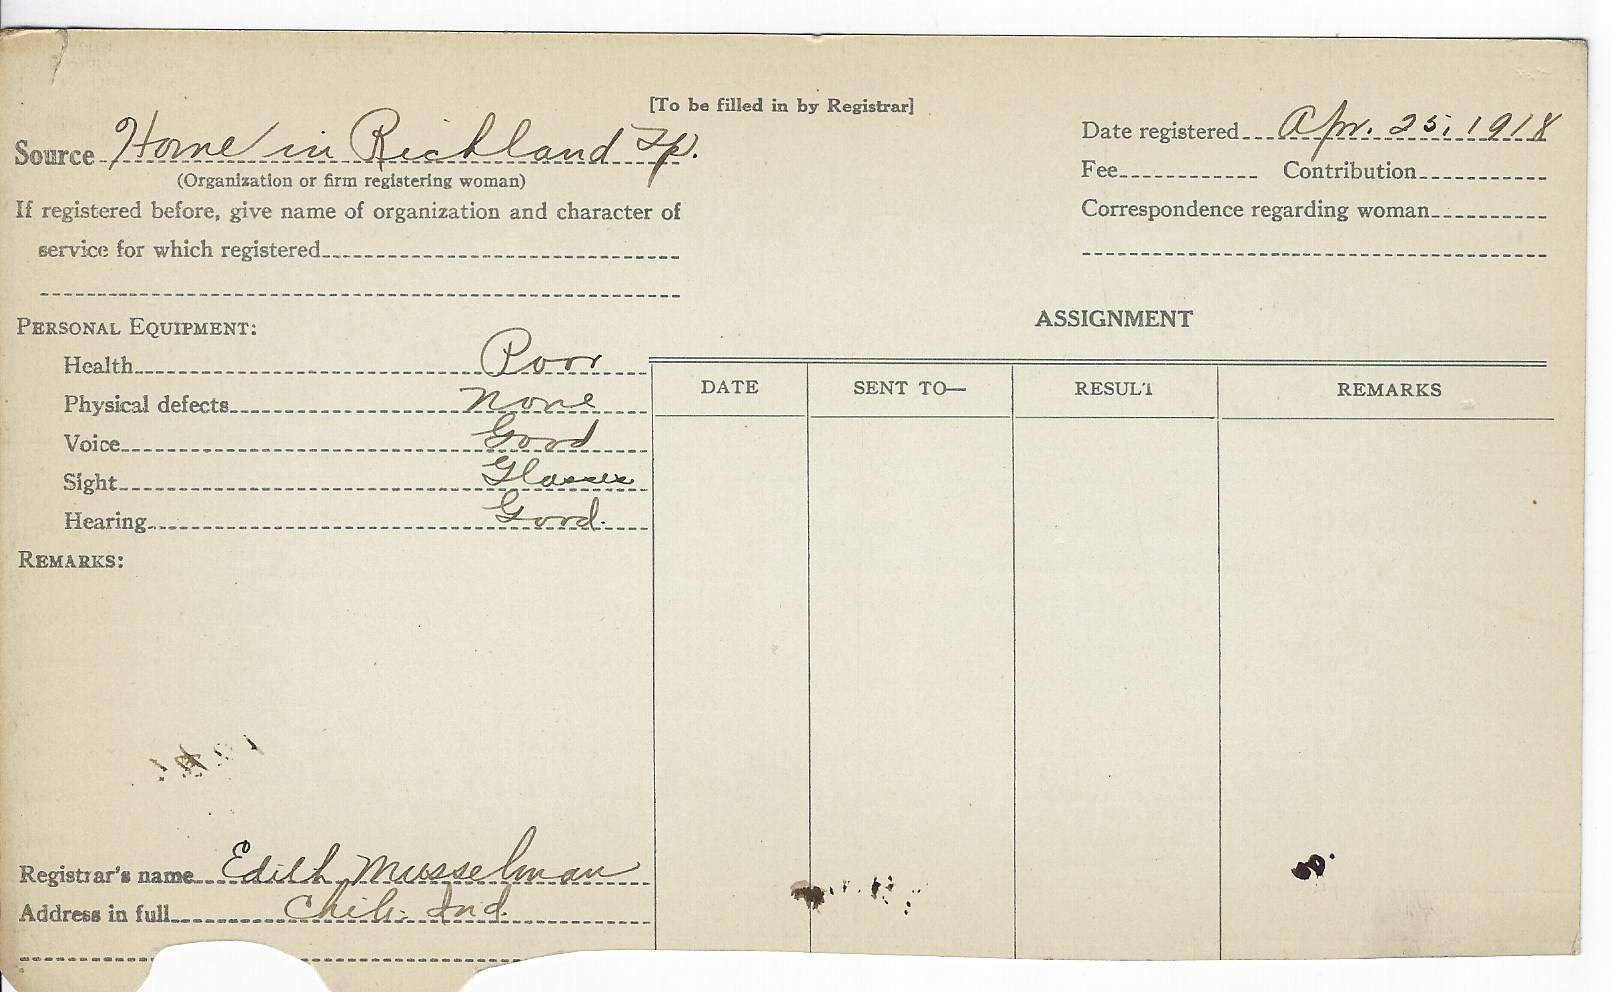 [To be filled in by Registrar]
Source Home in Richland Tp.
(Organization or firm registering woman)
If registered before, give name of organization and character of
service for which registered
Date registered Apr. 25, 1918
Fee Contribution
Correspondence regarding woman
PERSONAL EQUIPMENT:
Health Poor
Physical defects none
Voice Good
Sight Glasses
Hearing Good.
REMARKS:
ASSIGNMENT
DATE SENT TO— RESULT REMARKS
Registrar's name Edith Musselman
Address in full Chili, Ind.